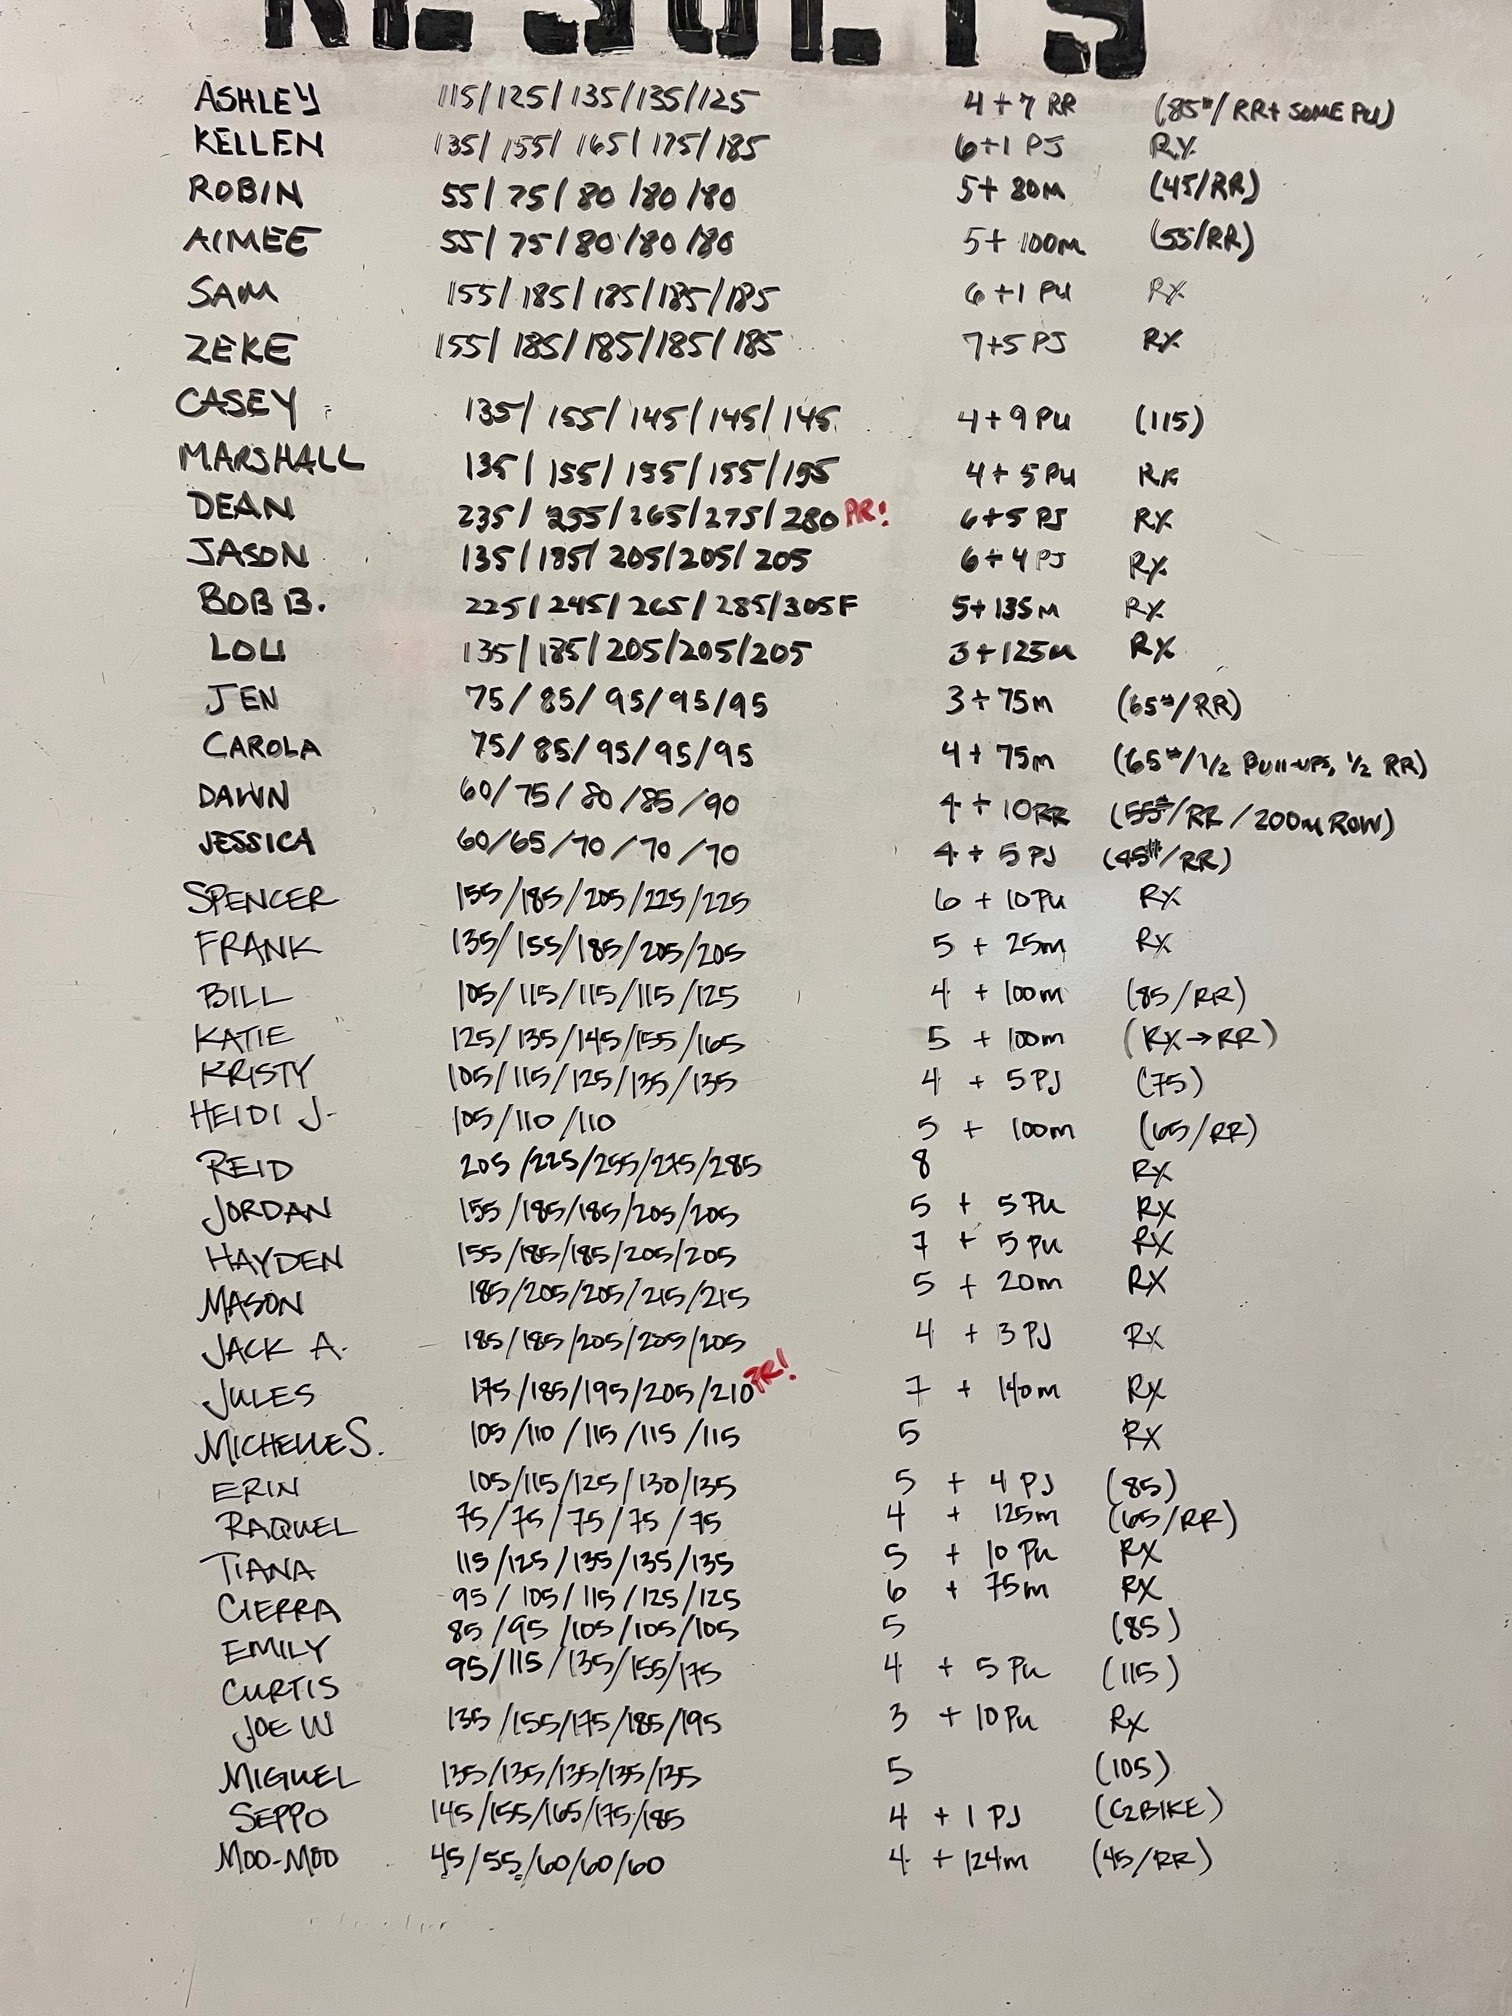 RESULTS
ASHLEY 115/125/135/135/125 4+7 RR (85#/RR+ SOME PU)
KELLEN 135/155/165/175/185 6+1 PJ RX
ROBIN 55/75/80/80/80 5+80m (45/RR)
AIMEE 55/75/80/80/80 5+100m (55/RR)
SAM 155/185/185/185/185 6+1 PU RX
ZEKE 155/185/185/185/185 7+5 PJ RX
CASEY 135/155/145/145/145 4+9 PU (115)
MARSHALL 135/155/155/155/155 4+5 PU RX
DEAN 235/255/265/275/280 PR! 6+5 PJ RX
JASON 135/185/205/205/205 6+4 PJ RX
BOB B. 225/245/265/285/305F 5+135m RX
LOU 135/185/205/205/205 3+125m RX
JEN 75/85/95/95/95 3+75m (65#/RR)
CAROLA 75/85/95/95/95 4+75m (65#/1/2 PUll-UPS, 1/2 RR)
DAWN 60/75/80/85/90 4+10RR (55#/RR/200m ROW)
JESSICA 60/65/70/70/70 4+5 PJ (45#/RR)
SPENCER 155/185/205/225/225 6+10 PU RX
FRANK 135/155/185/205/205 5+25m RX
BILL 105/115/115/115/125 4+100m (85/RR)
KATIE 125/135/145/155/165 5+100m (RX→RR)
KRISTY 105/115/125/135/135 4+5PJ (75)
HEIDI J. 105/110/110 5+100m (65/RR)
REID 205/225/255/275/285 8 RX
JORDAN 155/185/185/205/205 5+5 PU RX
HAYDEN 155/185/185/205/205 7+5 PU RX
MASON 185/205/205/215/215 5+20m RX
JACK A. 185/185/205/205/205 4+3 PJ RX
JULES 175/185/195/205/210 PR! 7+140m RX
MICHELLE S. 105/110/115/115/115 5 RX
ERIN 105/115/125/130/135 5+4 PJ (85)
RAQUEL 75/75/75/75/75 4+125m (65/RR)
TIANA 115/125/135/135/135 5+10 PU RX
CIERRA 95/105/115/125/125 6+75m RX
EMILY 85/95/105/105/105 5 (85)
CURTIS 95/115/135/155/175 4+5 PU (115)
JOE W 135/155/175/185/195 3+10PU RX
MIGUEL 135/135/135/135/135 5 (105)
SEPPO 145/155/165/175/185 4+1 PJ (C2BIKE)
MOO-MOO 45/55/60/60/60 4+124m (45/RR)